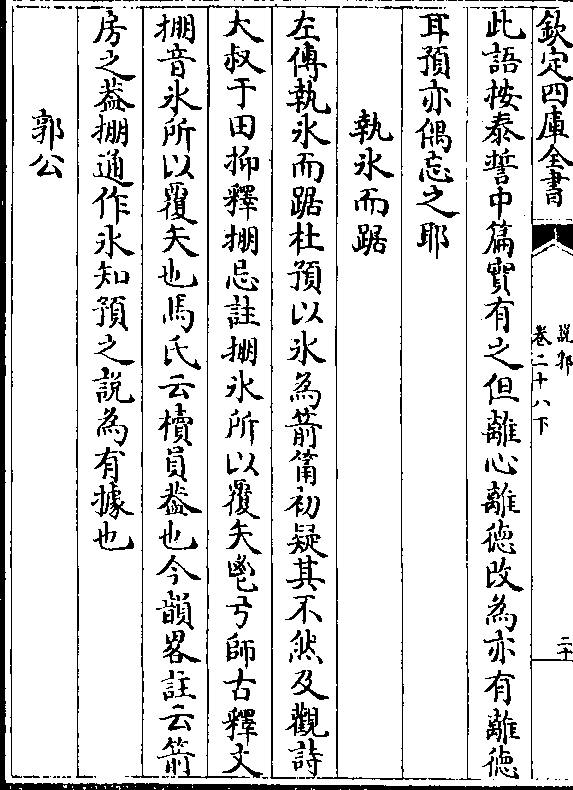 欽定四庫全書
説郛
卷二十八下
二十
此語按泰誓中篇實有之但離心離德改為亦有離德
耳預亦偶忘之耶
執氷而踞
左傳執氷而踞杜預以氷為箭筩初疑其不然及觀詩
大叔于田抑釋掤忌註掤氷所以覆矢鬯弓師古釋文
掤音氷所以覆矢也馬氏云櫝員葢也今韻畧註云箭
房之葢掤通作氷知預之説為有據也
郭公